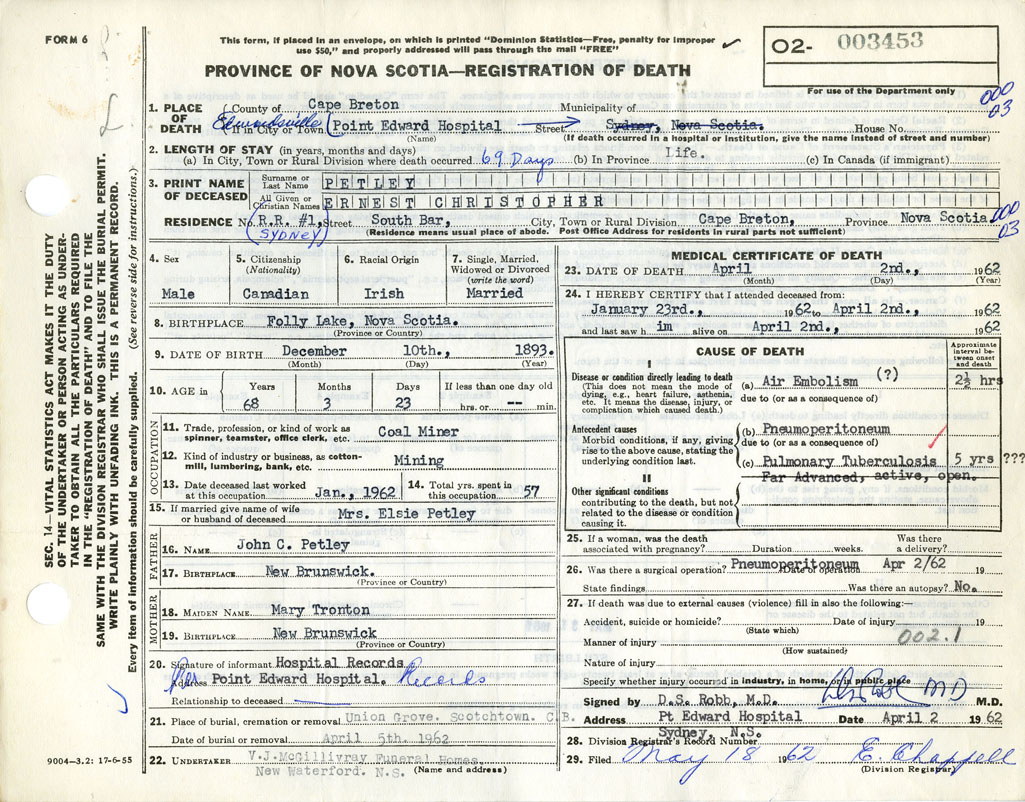 FORM 6
This form, if placed in an envelope, on which is printed "Dominion Statistics—Free, penalty for improper
use $50," and properly addressed will pass through the mail "FREE"
PROVINCE OF NOVA SCOTIA—REGISTRATION OF DEATH
02- 003453
For use of the Department only
000
03
SEC. 14—VITAL STATISTICS ACT MAKES IT THE DUTY
OF THE UNDERTAKER OR PERSON ACTING AS UNDER-
TAKER TO OBTAIN ALL THE PARTICULARS REQUIRED
IN THE "REGISTRATION OF DEATH" AND TO FILE THE
SAME WITH THE DIVISION REGISTRAR WHO SHALL ISSUE THE BURIAL PERMIT.
WRITE PLAINLY WITH UNFADING INK. THIS IS A PERMANENT RECORD.
Every item of information should be carefully supplied. (See reverse side for instructions.)
1. PLACE OF DEATH County of Cape Breton Municipality of
Edwardsville If in City or Town Point Edward Hospital Street Sydney, Nova Scotia. House No.
(Name) (If death occurred in a hospital or institution, give the name instead of street and number)
2. LENGTH OF STAY (in years, months and days)
(a) In City, Town or Rural Division where death occurred 69 Days (b) In Province Life. (c) In Canada (if immigrant)
3. PRINT NAME OF DECEASED Surname or Last Name PETLEY
All Given or Christian Names ERNEST CHRISTOPHER
RESIDENCE No. R.R. #1, Street South Bar, City, Town or Rural Division Cape Breton, Province Nova Scotia. 000
03
(SYDNEY) (Residence means usual place of abode. Post Office Address for residents in rural parts not sufficient)
4. Sex
Male
5. Citizenship
(Nationality)
Canadian
6. Racial Origin
Irish
7. Single, Married,
Widowed or Divorced
(write the word)
Married
8. BIRTHPLACE Folly Lake, Nova Scotia.
(Province or Country)
9. DATE OF BIRTH December 10th., 1893.
(Month) (Day) (Year)
10. AGE in Years Months Days If less than one day old
68 3 23 hrs. or -- min.
OCCUPATION
11. Trade, profession, or kind of work as
spinner, teamster, office clerk, etc. Coal Miner
12. Kind of industry or business, as cotton-
mill, lumbering, bank, etc. Mining
13. Date deceased last worked
at this occupation Jan., 1962
14. Total yrs. spent in
this occupation 57
15. If married give name of wife
or husband of deceased Mrs. Elsie Petley
FATHER
16. NAME John C. Petley
17. BIRTHPLACE New Brunswick.
(Province or Country)
MOTHER
18. MAIDEN NAME Mary Tronton
19. BIRTHPLACE New Brunswick
(Province or Country)
20. Signature of informant Hospital Records
Address Point Edward Hospital. Records
Relationship to deceased
21. Place of burial, cremation or removal Union Grove. Scotchtown. C.B.
Date of burial or removal April 5th. 1962
22. UNDERTAKER V.J.McGillivray Funeral Homes,
New Waterford. N.S. (Name and address)
9004—3.2: 17-6-55
MEDICAL CERTIFICATE OF DEATH
23. DATE OF DEATH April 2nd., 1962
(Month) (Day) (Year)
24. I HEREBY CERTIFY that I attended deceased from:
January 23rd., 1962 to April 2nd., 1962
and last saw h im alive on April 2nd., 1962
CAUSE OF DEATH
Approximate
interval be-
tween onset
and death
I
Disease or condition directly leading to death
(This does not mean the mode of
dying, e.g., heart failure, asthenia,
etc. It means the disease, injury, or
complication which caused death.)
(a) Air Embolism (?) 2½ hrs
due to (or as a consequence of)
Antecedent causes
Morbid conditions, if any, giving
rise to the above cause, stating the
underlying condition last.
(b) Pneumoperitoneum
due to (or as a consequence of)
(c) Pulmonary Tuberculosis 5 yrs ???
Far Advanced, active, open.
II
Other significant conditions
contributing to the death, but not
related to the disease or condition
causing it.
25. If a woman, was the death
associated with pregnancy? Duration weeks. Was there
a delivery?
26. Was there a surgical operation? Pneumoperitoneum Date of operation Apr 2/62 19
State findings Was there an autopsy? No.
27. If death was due to external causes (violence) fill in also the following:—
Accident, suicide or homicide? Date of injury 19
(State which)
Manner of injury 002.1
(How sustained)
Nature of injury
Specify whether injury occurred in industry, in home, or in public place
Signed by D.S. Robb, M.D. DS Robb MD M.D.
Address Pt Edward Hospital Date April 2 1962
Sydney, N.S.
28. Division Registrar's Record Number
29. Filed May 18 1962 E. Chappell
(Division Registrar)